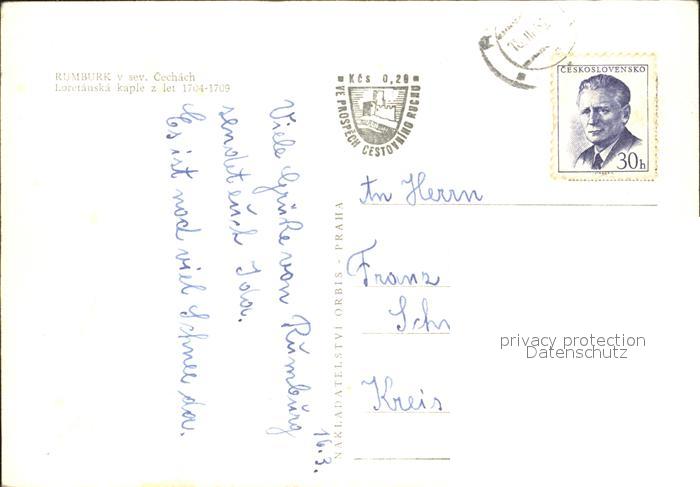 RUMBURK v sev. Čechách
Loretánská kaple z let 1704-1709
Kčs 0,20
VE PROSPĚCH CESTOVNÍHO RUCHU
ČESKOSLOVENSKO
30h
NAKLADATELSTVÍ ORBIS - PRAHA
Viele Grüße von Rŭmbŭrg
sendet eŭch Ida.
Es ist noch viel Schnee da.
16.3.
An Herrn
Franz
Sch
Kreis
privacy protection
Datenschutz